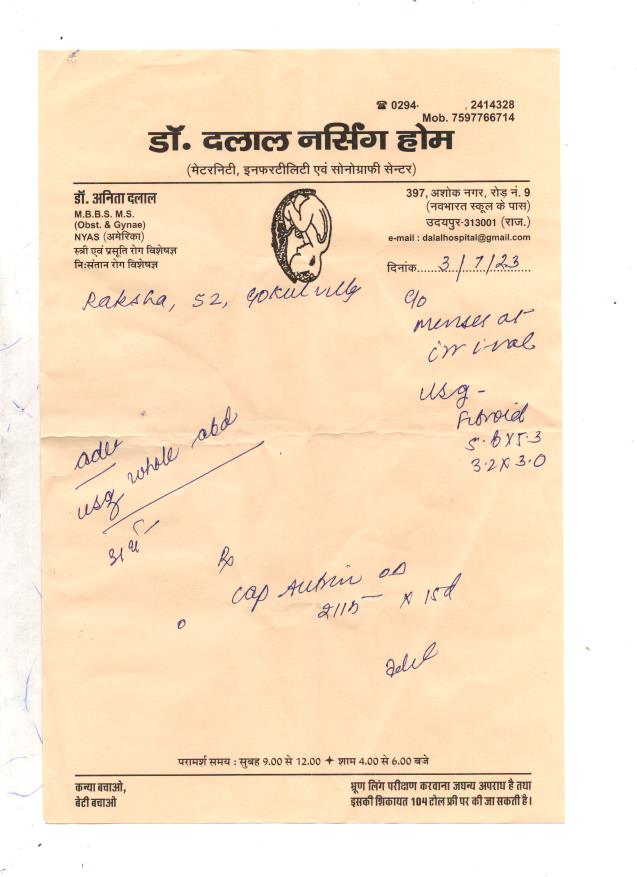 ☎ 0294- , 2414328
Mob. 7597766714
डॉ. दलाल नर्सिंग होम
(मेटरनिटी, इनफरटीलिटी एवं सोनोग्राफी सेन्टर)
डॉ. अनिता दलाल
M.B.B.S. M.S.
(Obst. & Gynae)
NYAS (अमेरिका)
स्त्री एवं प्रसूति रोग विशेषज्ञ
नि:संतान रोग विशेषज्ञ
397, अशोक नगर, रोड़ नं. 9
(नवभारत स्कूल के पास)
उदयपुर-313001 (राज.)
e-mail : dalalhospital@gmail.com
दिनांक 3/7/23
Raksha, 52,
c/o
menses at
usg -
Fibroid
5.6x5.3
3.2x3.0
adv
usg whole abd
Rx
cap OD
x 15d
परामर्श समय : सुबह 9.00 से 12.00 ✦ शाम 4.00 से 6.00 बजे
कन्या बचाओ,
बेटी बचाओ
भ्रूण लिंग परीक्षण करवाना जघन्य अपराध है तथा
इसकी शिकायत 104 टोल फ्री पर की जा सकती है।